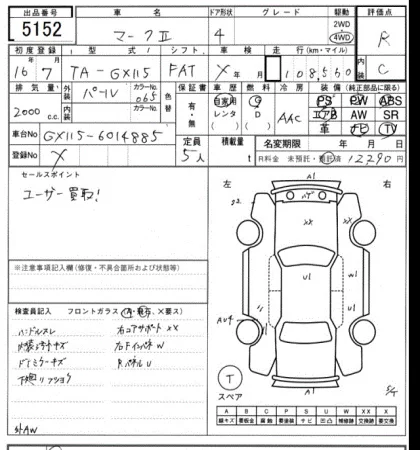 出品番号 車名 ドア形状 グレード 駆動 評価点
5152 マークⅡ 4 2WD 4WD R
初度登録 型式 シフト 車検 走行(km・マイル) 内装
16 7 TA-GX115 FAT X 108,560 C
排気量 外装 カラーNo. 色替 保証書 車歴 燃料 冷房 装備(純正部品に限る)
2000 c.c. パール 065 有・無 自家用 G AAC PS PW ABS
内装 カラーNo. レンタ D エアB AW SR
( ) ( ) 革 ナビ TV
車台No GX115-6014885 定員 積載量 名変期限 年 月 日
登録No X 5人 t R料金 未預託・預託済 12,290円
セールスポイント
ユーザー買取!
左 右
A1
02
XX
U1
AU4
S/T
スペア
T
※注意事項記入欄(修復・不具合箇所および状態等)
検査員記入 フロントガラス(A・飛石、X要ス)
ハンドルスレ 右コアサポートXX
内装キズ 右FインパネW
RパネルU
外AW
A B C P S U W XX X
線キズ 要板金 腐蝕 要塗装 サビ 凹凸 補修跡 交換跡 要交換